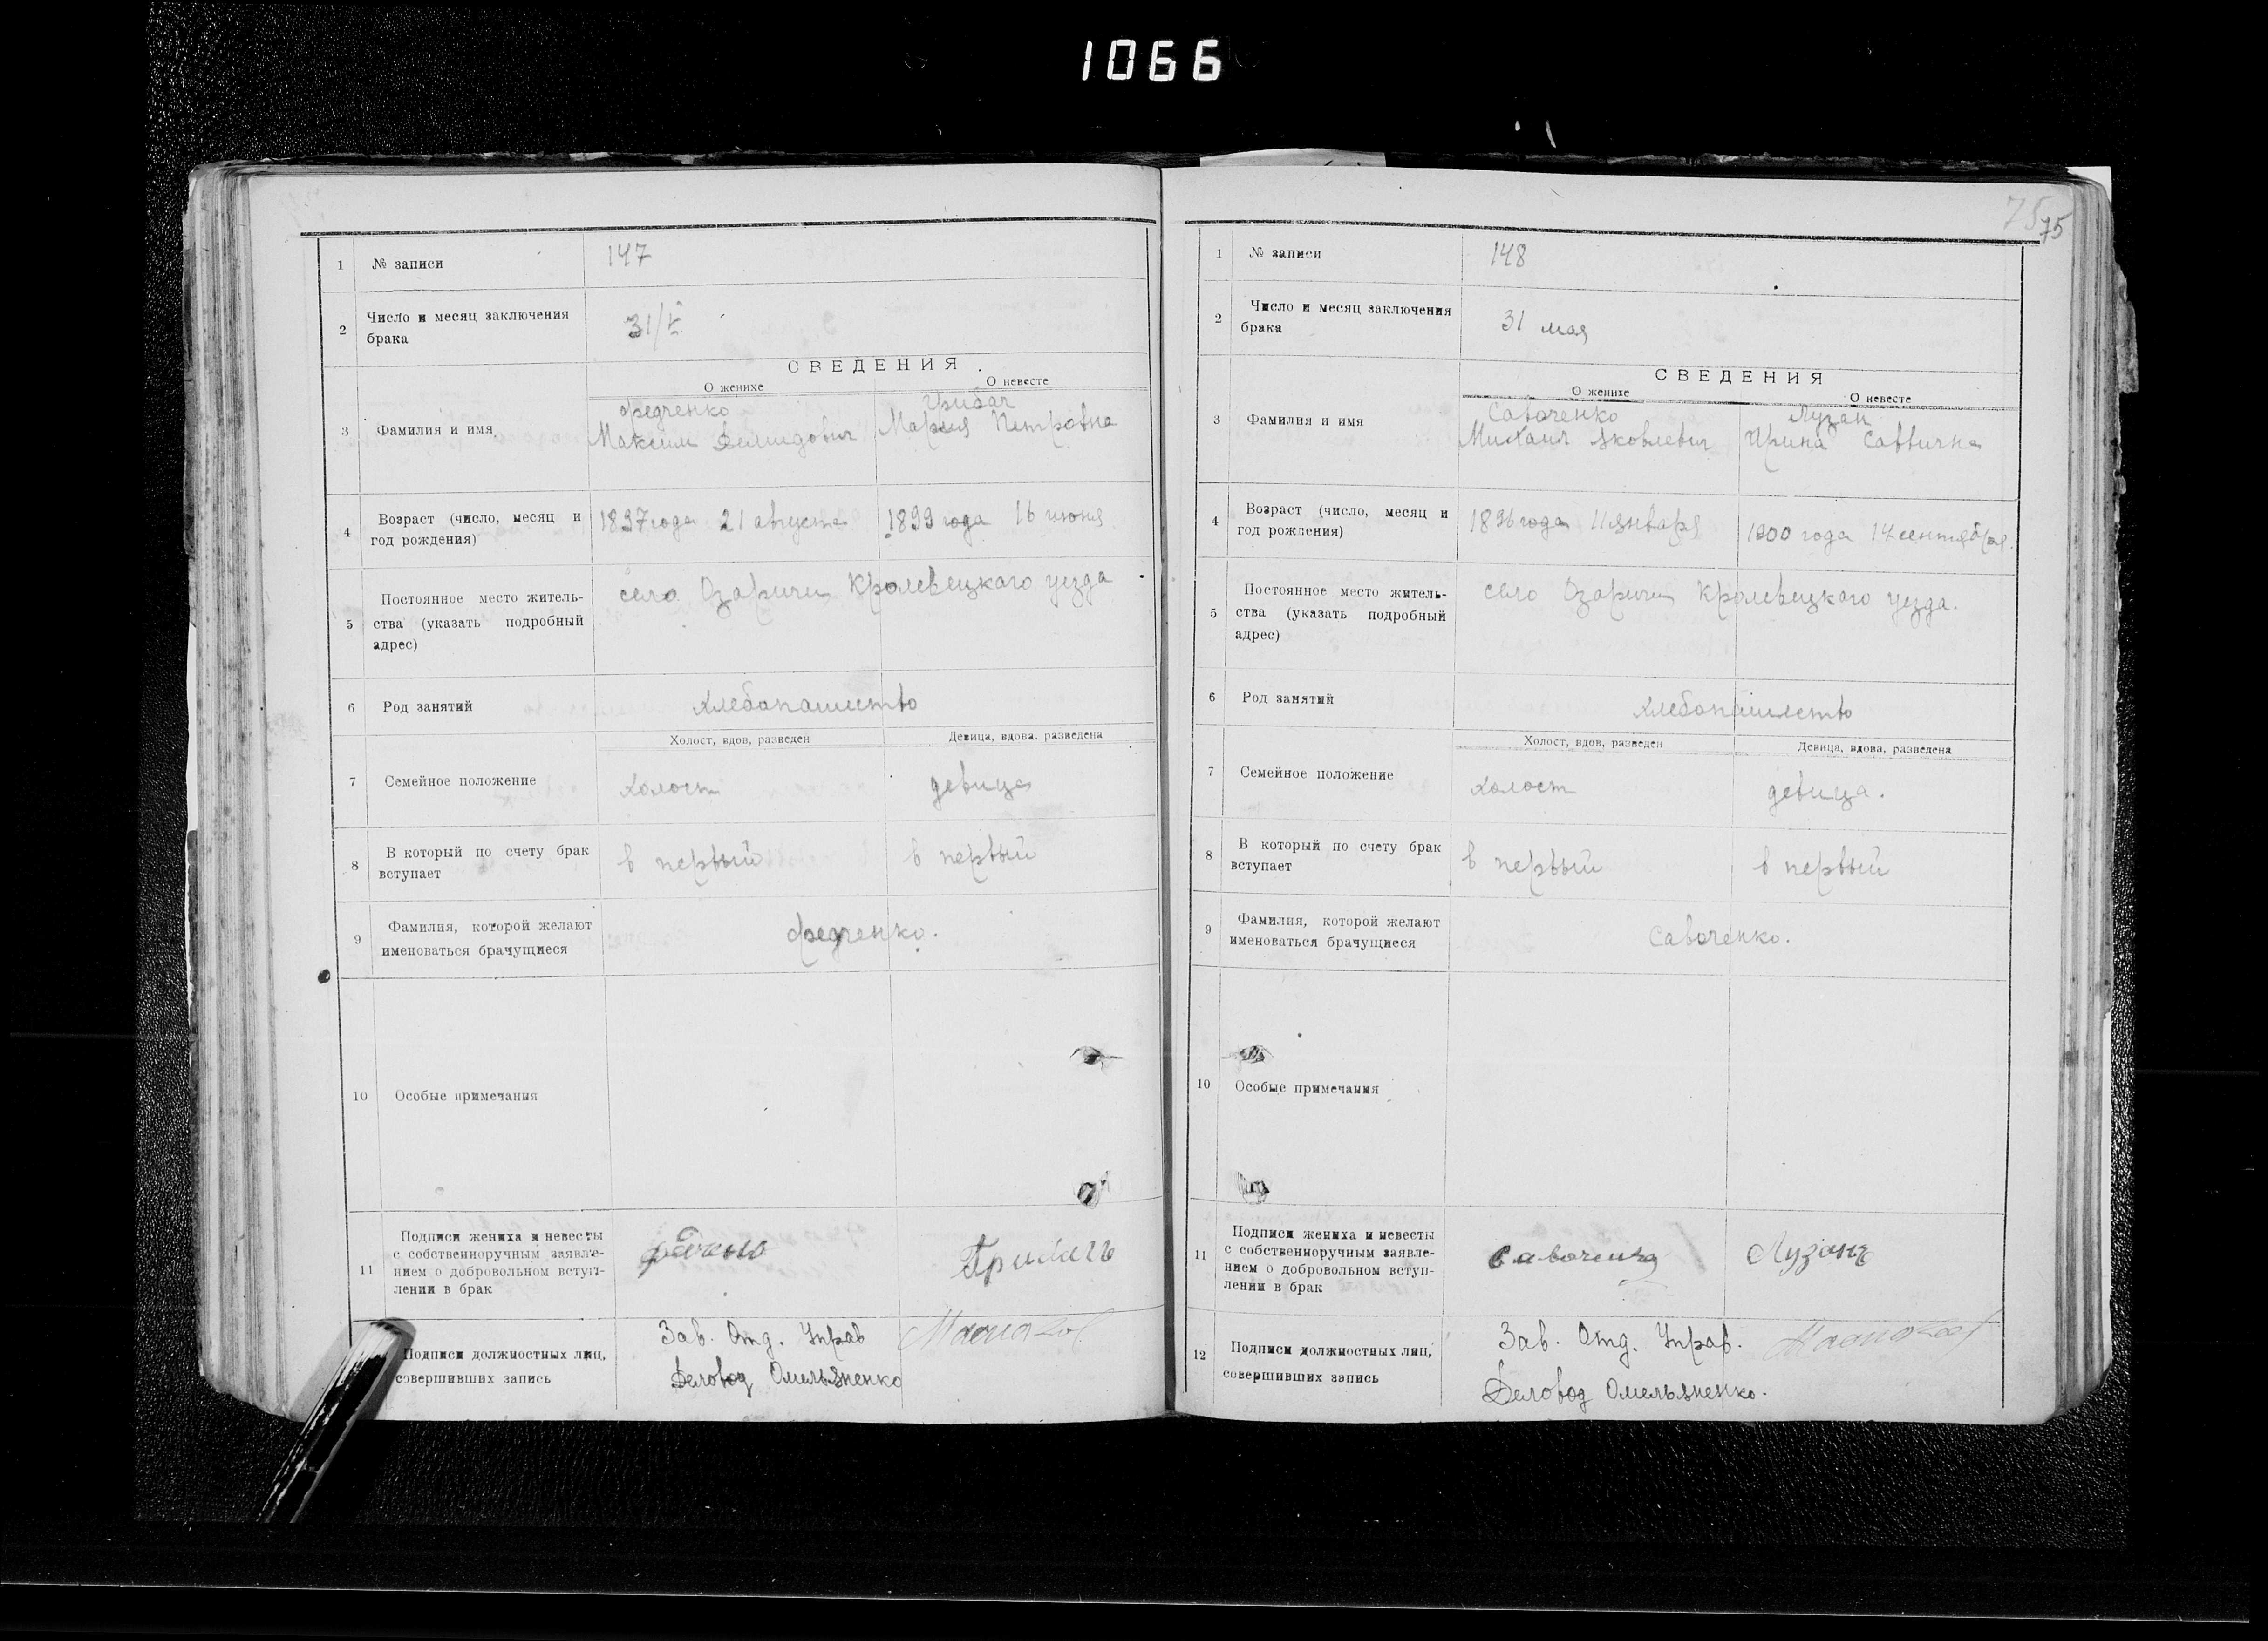 1066
1 № записи 147
2 Число и месяц заключения
брака
31/V
СВЕДЕНИЯ
О женихе О невесте
3 Фамилия и имя
Федченко
Максим Демидович
Грибач
Мария Петровна
4 Возраст (число, месяц и
год рождения)
1897 года 21 августа
1899 года 16 июня
5 Постоянное место житель-
ства (указать подробный
адрес)
село Озаричи Кролевецкаго уезда
6 Род занятий хлебопашство
Холост, вдов, разведен Девица, вдова, разведена
7 Семейное положение холост девица
8 В который по счету брак
вступает
в первый в первый
9 Фамилия, которой желают
именоваться брачущиеся
Федченко.
10 Особые примечания
11 Подписи жениха и невесты
с собственноручным заявле-
нием о добровольном вступ-
лении в брак
Подписи должностных лиц,
совершивших запись
Зав. Отд. Управ
Деловод Омельяненко
75 75
1 № записи 148
2 Число и месяц заключения
брака
31 мая
СВЕДЕНИЯ
О женихе О невесте
3 Фамилия и имя
Савоченко
Михаил Яковлевич
Лузан
Ирина Саввична
4 Возраст (число, месяц и
год рождения)
1896 года 11 января
1900 года 14 сентября.
5 Постоянное место житель-
ства (указать подробный
адрес)
село Озаричи Кролевецкаго уезда.
6 Род занятий хлебопашество
Холост, вдов, разведен Девица, вдова, разведена
7 Семейное положение холост девица.
8 В который по счету брак
вступает
в первый в первый
9 Фамилия, которой желают
именоваться брачущиеся
Савоченко.
10 Особые примечания
11 Подписи жениха и невесты
с собственноручным заявле-
нием о добровольном вступ-
лении в брак
Савоченко Лузанъ
12 Подписи должностных лиц,
совершивших запись
Зав. Отд. Управ.
Деловод Омельяненко.